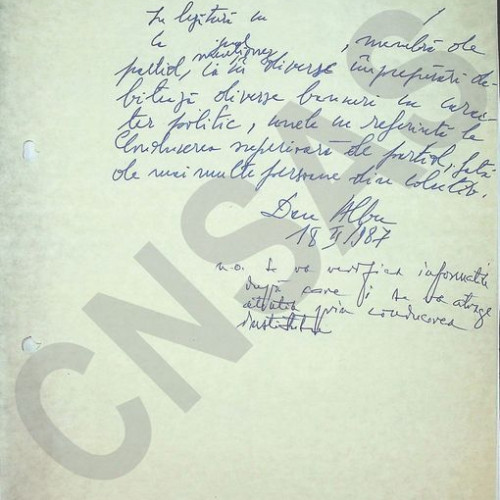 În legătură cu
că menționez, membră de
partid, că în diverse împrejurări de-
bitează diverse bancuri cu carac-
ter politic, unele cu referință la
Conducerea superioară de partid, față
de mai multe persoane din colectiv.
Dan Albu
18 II/1987
n.o. Se va verifica informația
după care i se va atrage
atenția prin conducerea
institutului
CNSAS